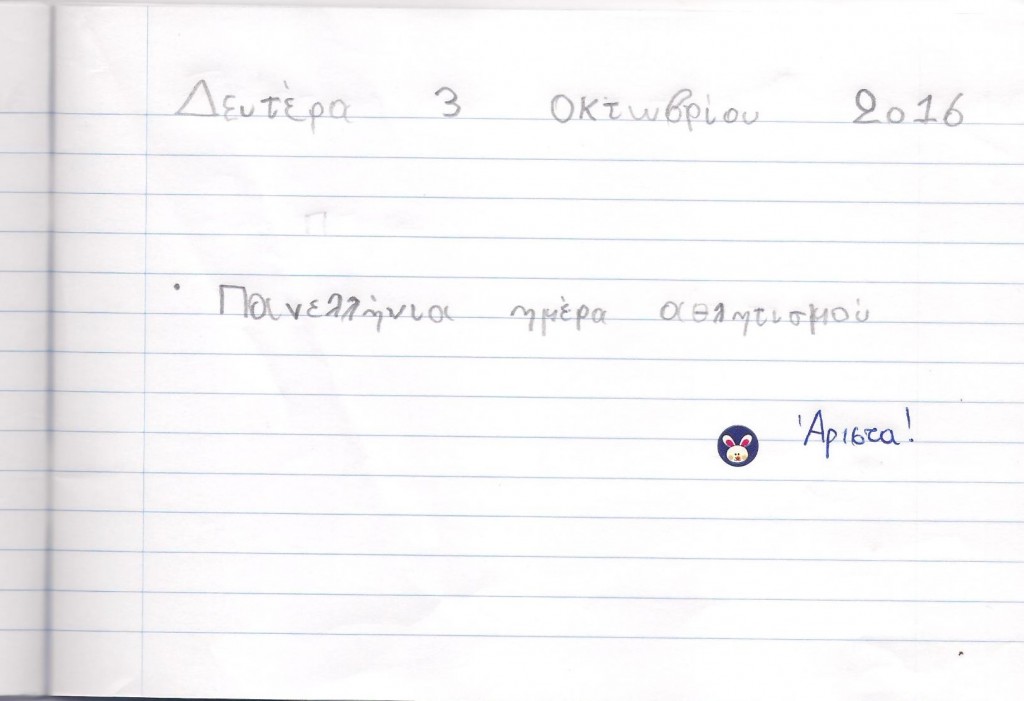 Δευτέρα 3 Οκτωβρίου 2016
Π
• Πανελλήνια ημέρα αθλητισμού
Άριστα!